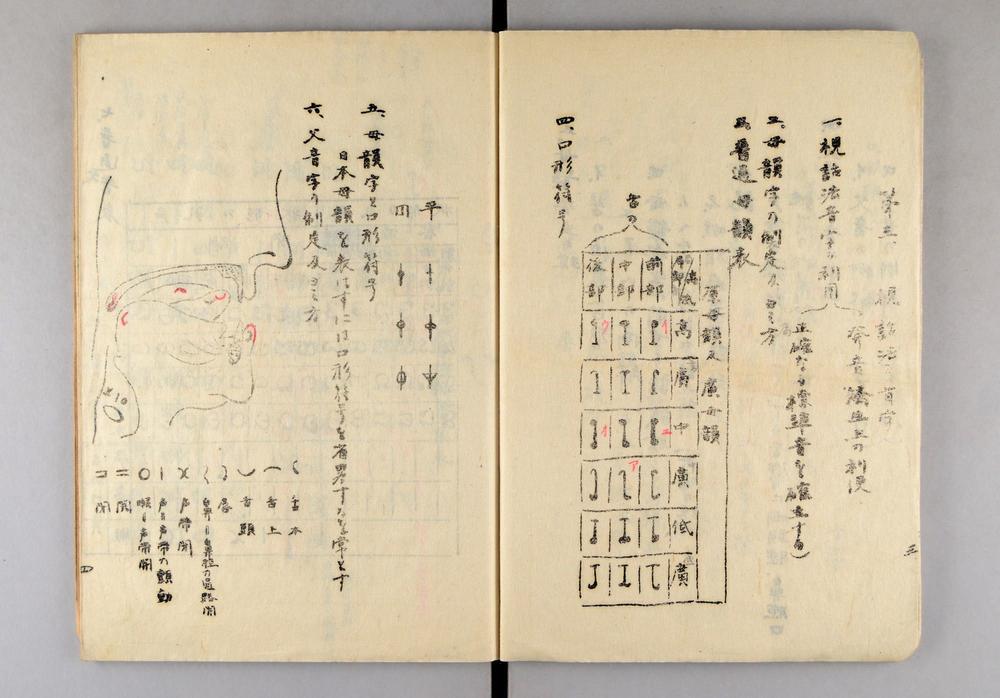 一、視話法音字の利用
発音法上の利便
正確なる標準音を確立する(
二、母韻字の制定及ヨミ方
三、普通母韻表
原母韻及廣母韻
舌の
前部
中部
後部
高
廣
中
廣
低
廣
イ
エ
ア
四、口形符号
三
平
円
五、母韻字と口形符号
日本母韻を表はすには口形符号を省畧するを常とす
六、父音字の制定及ヨミ方
舌本
舌上
舌頭
唇
鼻(鼻腔の通路開
声帯開
声(声帯の顫動
喉(声帯開
開
閉
四